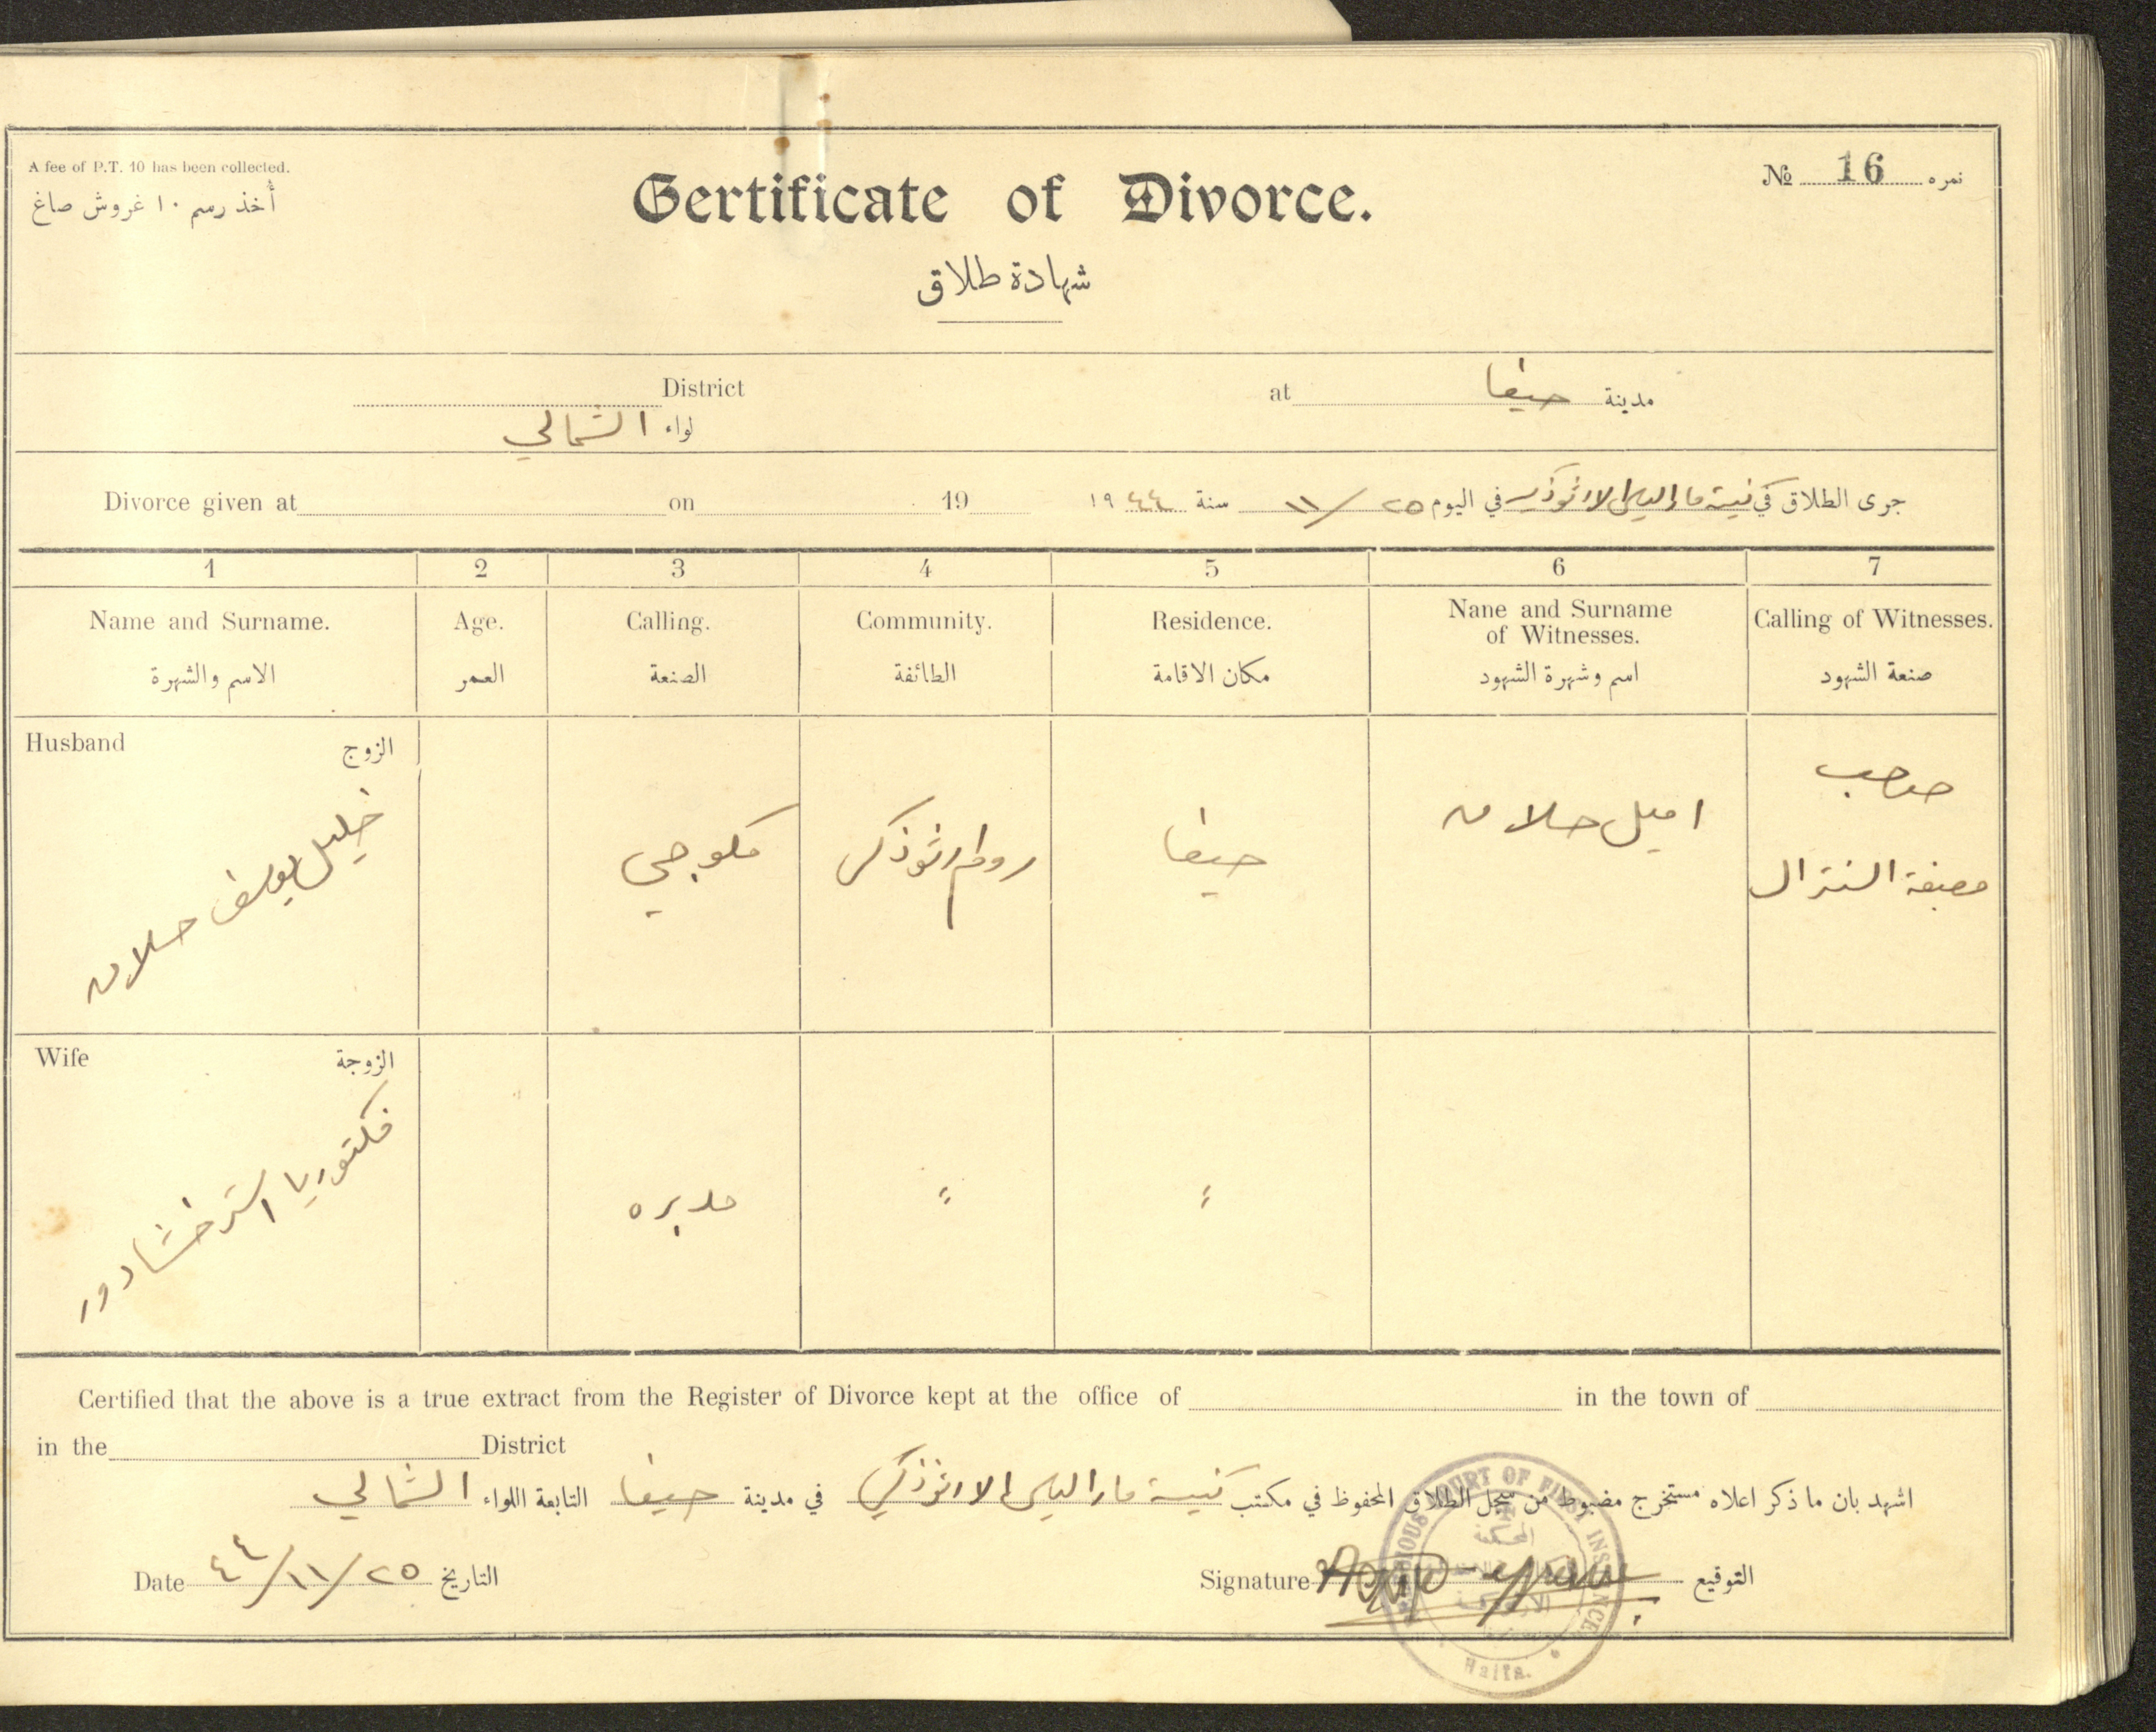 A fee of P.T. 10 has been collected.
أخذ رسم ١٠ غروش صاغ
Certificate of Divorce.
شهادة طلاق
№ 16 نمره
District
لواء الشمالي
at حيفا مدينة
Divorce given at on 19
جرى الطلاق في كنيسة مار الياس الارثوذكس في اليوم ٢٥/١١ سنة ١٩٤٤
1 2 3 4 5 6 7
Name and Surname. Age. Calling. Community. Residence. Nane and Surname of Witnesses. Calling of Witnesses.
الاسم والشهرة العمر الصنعة الطائفة مكان الاقامة اسم وشهرة الشهود صنعة الشهود
Husband الزوج
خليل يوسف حلاق
مكوجي
روم ارثوذكس
حيفا
اميل حلاق
صاحب
مصبغة السنترال
Wife الزوجة
فكتوريا استر خشادور
مدبره
〃
〃
Certified that the above is a true extract from the Register of Divorce kept at the office of in the town of
in the District
اشهد بان ما ذكر اعلاه مستخرج مضبوط من سجل الطلاق المحفوظ في مكتب كنيسة مار الياس الارثوذكسي في مدينة حيفا التابعة اللواء الشمالي
Date ٢٥/١١/٤٤ التاريخ
Signature التوقيع
RELIGIOUS COURT OF FIRST INSTANCE
المحكمة
Haifa.